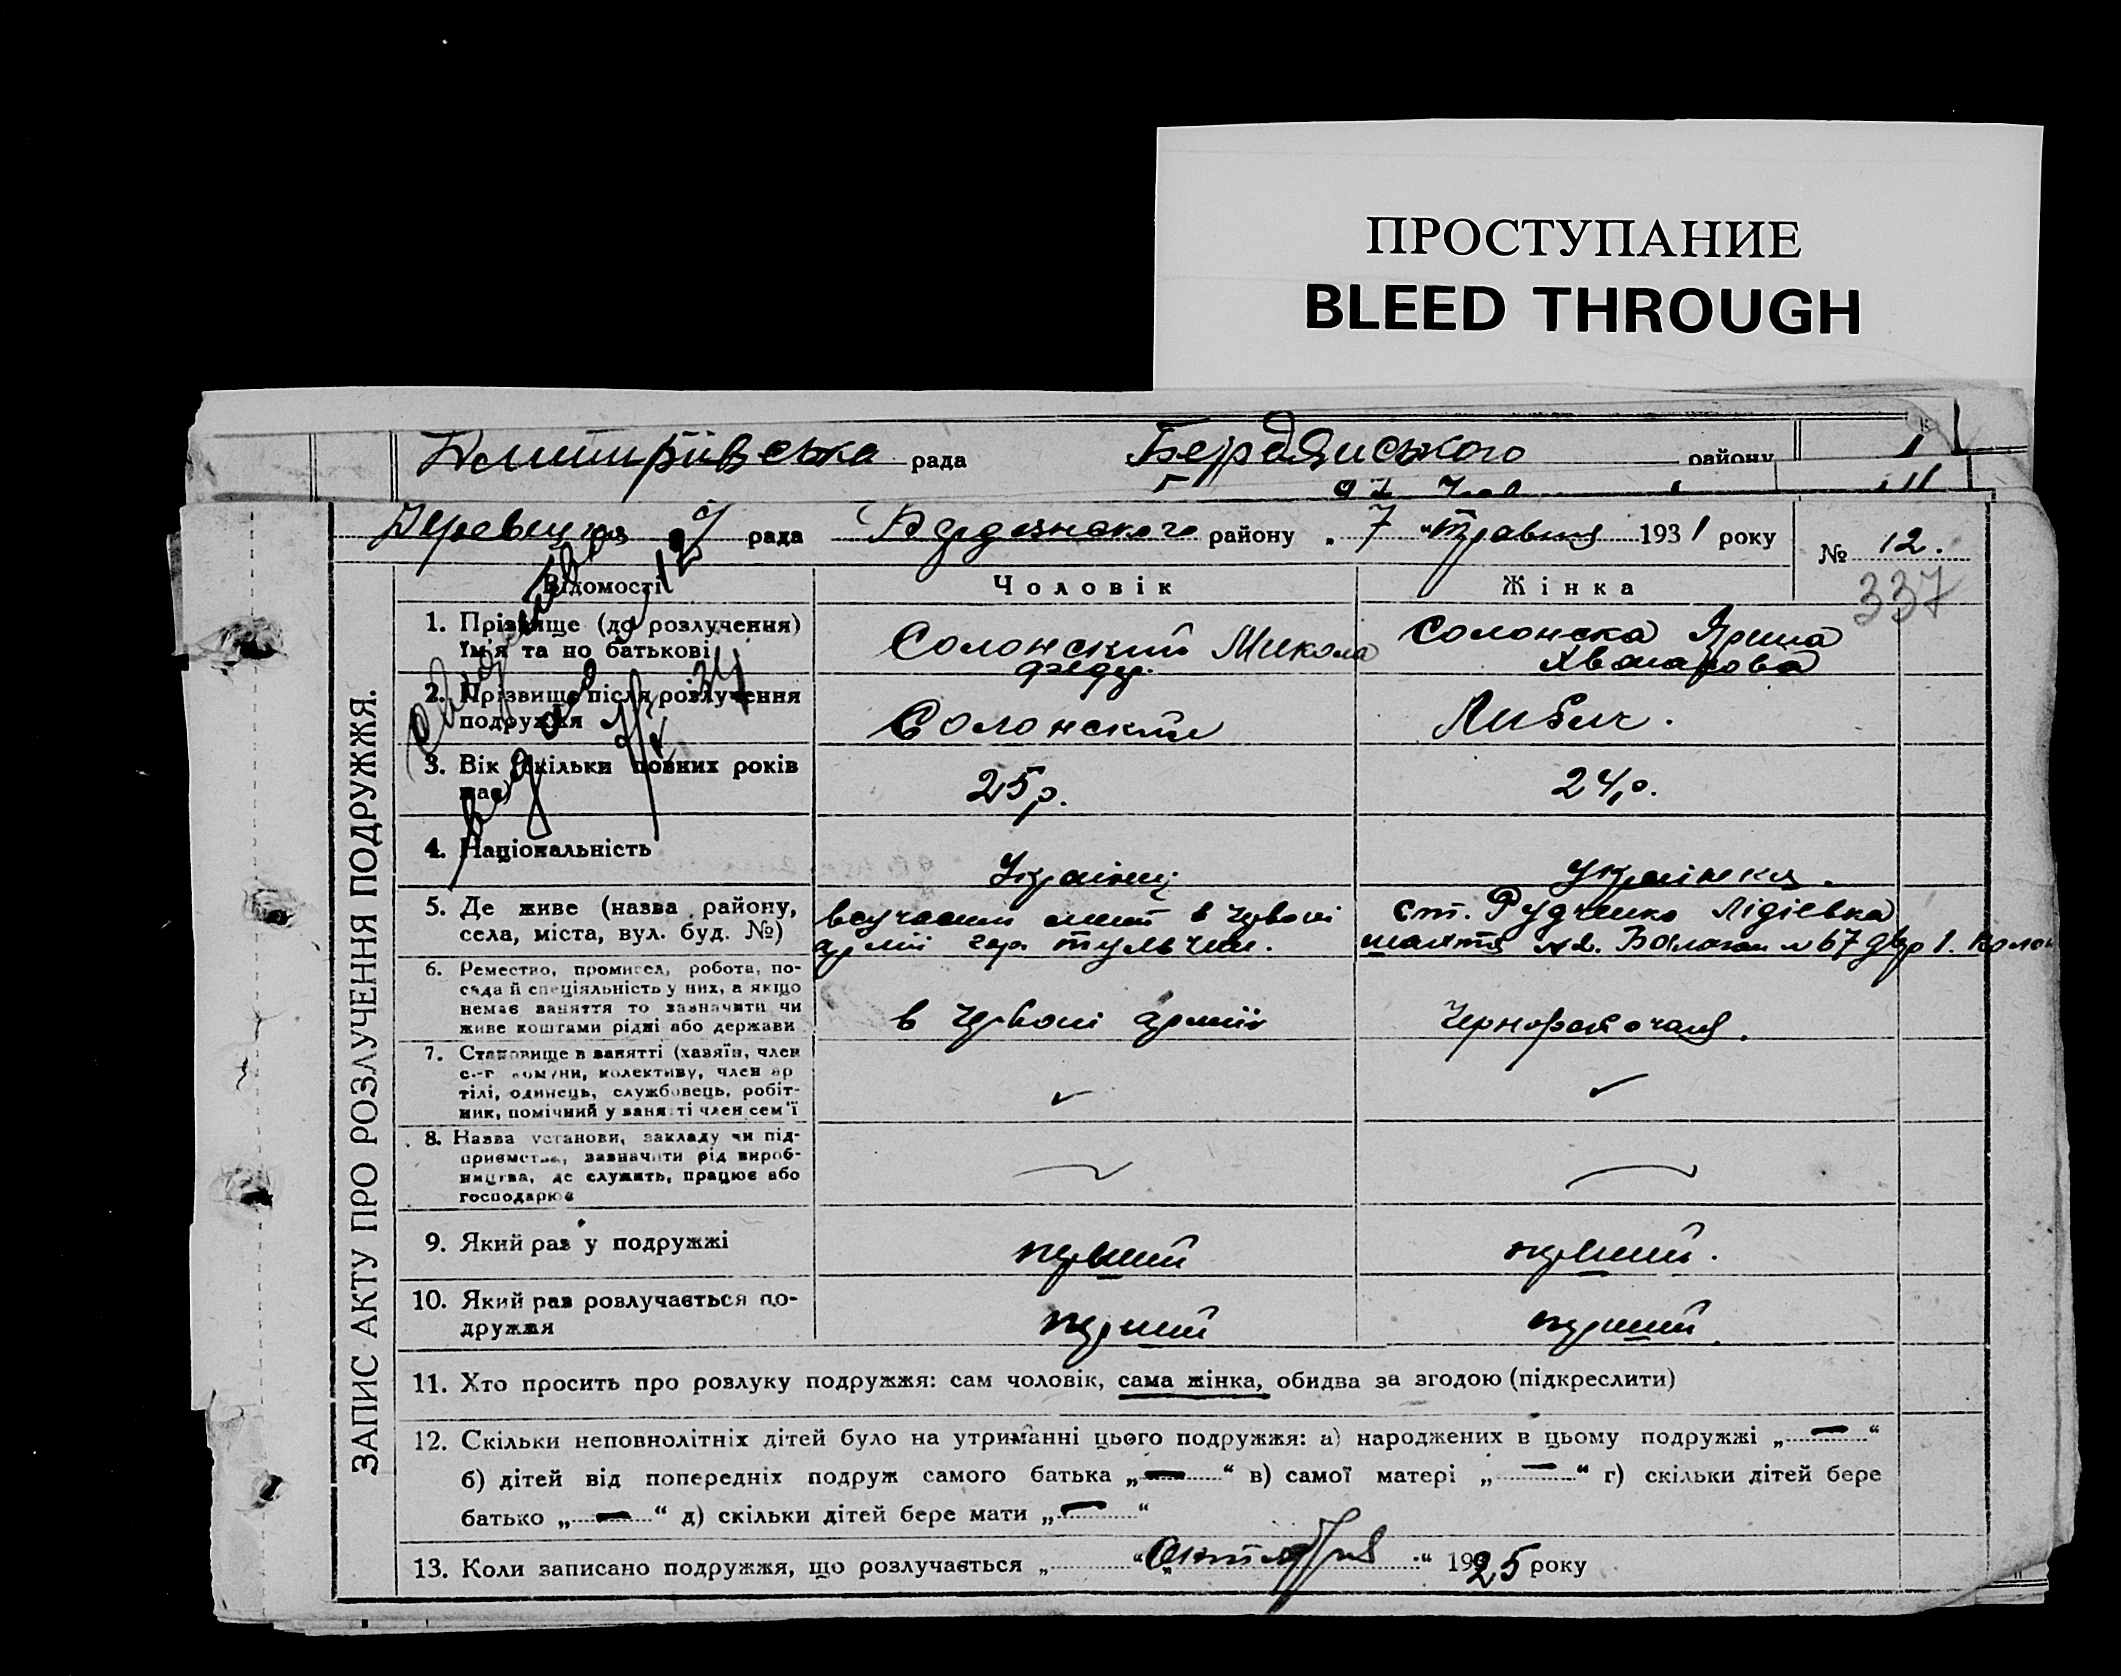 ПРОСТУПАНИЕ
BLEED THROUGH
Дмитрівська рада Бердянського району
рада Бердянського району „ 7 " травня 1931 року № 12.
337
ЗАПИС АКТУ ПРО РОЗЛУЧЕННЯ ПОДРУЖЖЯ.
Відомості Чоловік Жінка
1. Прізвище (до розлучення)
їм'я та по батькові
Солонский Микола
феду.
Солонска Ярина
2. Прізвище після розлучення
подружжя
Солонский
3. Вік (скільки повних років
має)
25 р. 24 р.
4. Національність
Українец Українка.
5. Де живе (назва району,
села, міста, вул. буд. №)
в Червоні
армії гор. тульчин.
ст. Рудченко Лідіевка
шахта №67
6. Ремество, промисел, робота, по-
сада й спеціяльність у них, а якщо
немає заняття то зазначити чи
живе коштами рідні або держави
в Червоні армії Чернорабочая.
7. Становище в занятті (хазяїн, член
с.-г. комуни, колективу, член ар
тілі, одинець, службовець, робіт-
ник, помічний у занятті член сем'ї
8. Назва установи, закладу чи під-
приємства, зазначити рід вироб-
ництва, де служить, працює або
господарює
9. Який раз у подружжі
перший перший.
10. Який раз розлучається по-
дружжя
перший перший.
11. Хто просить про розлуку подружжя: сам чоловік, сама жінка, обидва за згодою (підкреслити)
12. Скільки неповнолітніх дітей було на утриманні цього подружжя: а) народжених в цьому подружжі „ — “
б) дітей від попередніх подруж самого батька „ — “ в) самої матері „ — “ г) скільки дітей бере
батько „ — “ д) скільки дітей бере мати „ — “
13. Коли записано подружжя, що розлучається „ “ Октября “ 1925 року